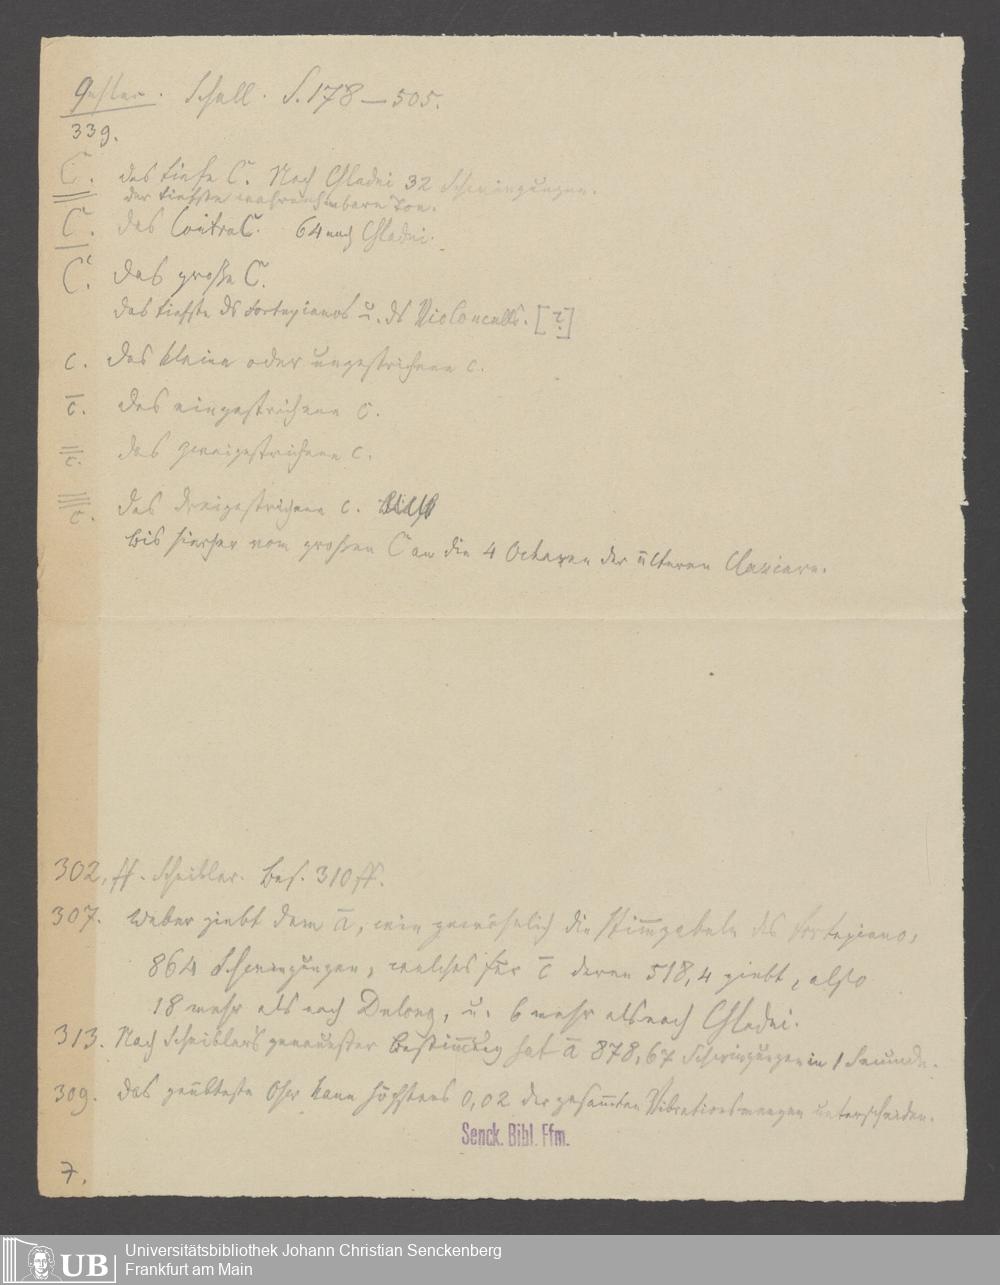 Gehler. Schall. S. 178–505.
339.
C. das tiefe C. Nach Chladni 32 Schwingungen.
der tiefste wahrnehmbare Ton.
C. das Contra C. 64 nach Chladni.
C. das große C.
das tiefste ds Fortepianos u. ds Violoncells. [?]
c. das kleine oder ungestrichene c.
c̅. das eingestrichene c.
c̿. das zweigestrichene c.
c. das dreigestrichene c.
bis hierher vom großen C an die 4 Octaven der älteren Claviere.
302, ff. Scheibler. Bes. 310 ff.
307. Weber giebt dem a̅, wie gewöhnlich die Stim̅gabeln des Fortepiano,
864 Schwingungen, welches für c̅ deren 518,4 giebt, also
18 mehr als nach Dulong, u. 6 mehr als nach Chladni.
313. Nach Scheibler's genauester Bestim̅ung hat a̅ 878,67 Schwingungen in 1 Secunde.
309. das geübteste Ohr kann höchstens 0,02 der gesam̅ten Vibrationsmengen unterscheiden.
Senck. Bibl. Ffm.
7.
UB
Universitätsbibliothek Johann Christian Senckenberg
Frankfurt am Main